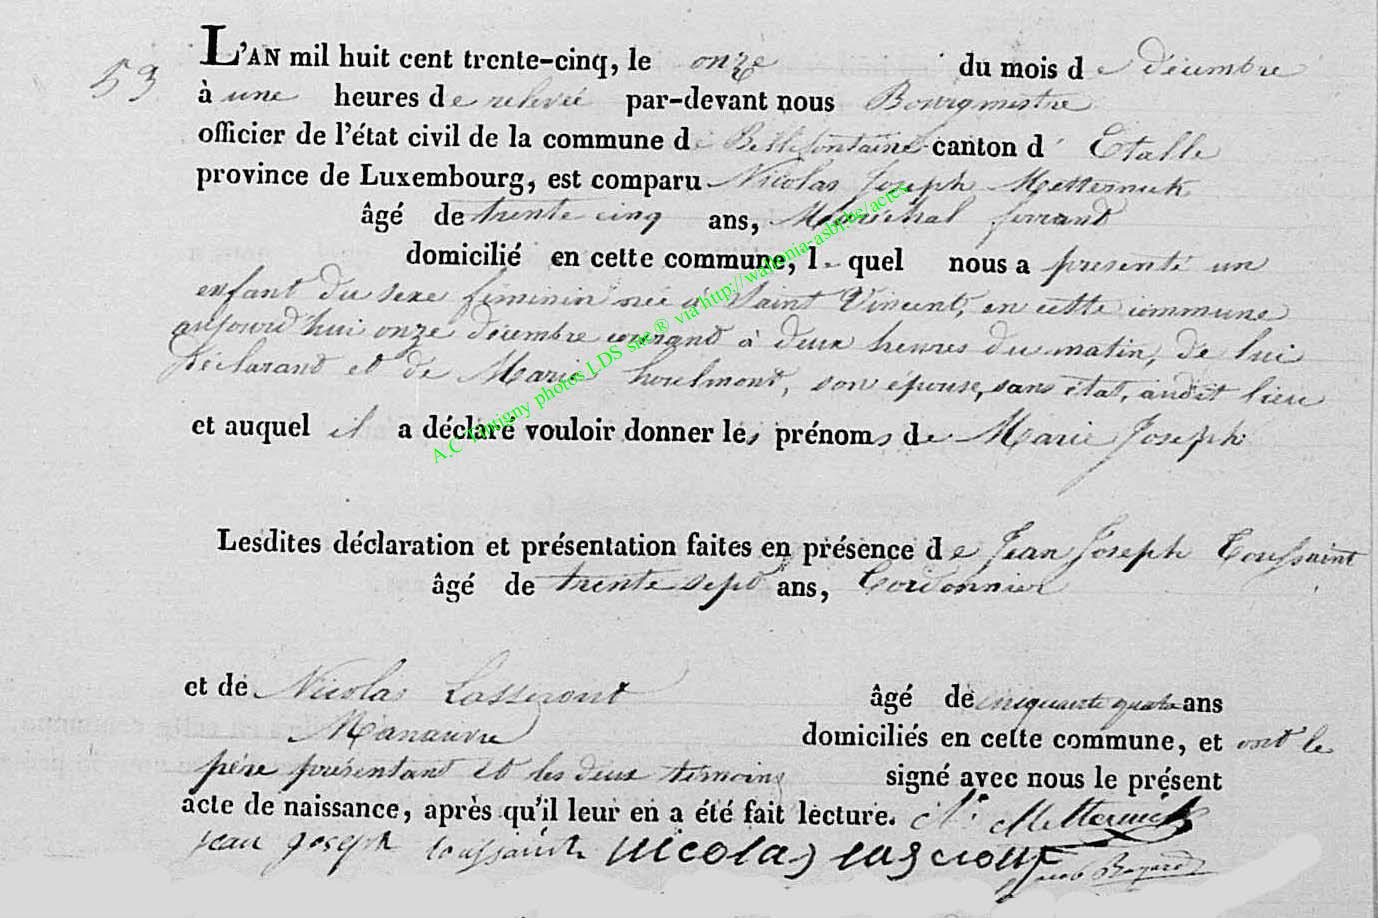 53
L'AN mil huit cent trente-cinq, le onze du mois de décembre
à une heures de relevée par-devant nous Bourgmestre
officier de l'état civil de la commune de Bellefontaine canton d' Etalle
province de Luxembourg, est comparu Nicolas Joseph Metternick
âgé de trente cinq ans, Maréchal ferrand
domicilié en cette commune, le quel nous a présenté un
enfant du sexe féminin née à Saint Vincent, en cette commune
aujourd'hui onze décembre courand à deux heures du matin, de lui
déclarand et de Marie, son épouse, sans état, audit lieu
et auquel il a déclaré vouloir donner les prénoms de Marie Joseph
Lesdites déclaration et présentation faites en présence de Jean Joseph Toussaint
âgé de trente sept ans, Cordonnier
et de Nicolas âgé de cinquante quatre ans
Manœuvre domiciliés en cette commune, et ont le
père présentant et les deux témoins signé avec nous le présent
acte de naissance, après qu'il leur en a été fait lecture. N. Metternick
jean joseph toussaint nicolas
A.C Tintigny photos LDS site ® via http://wallonia-asbl.be/actes